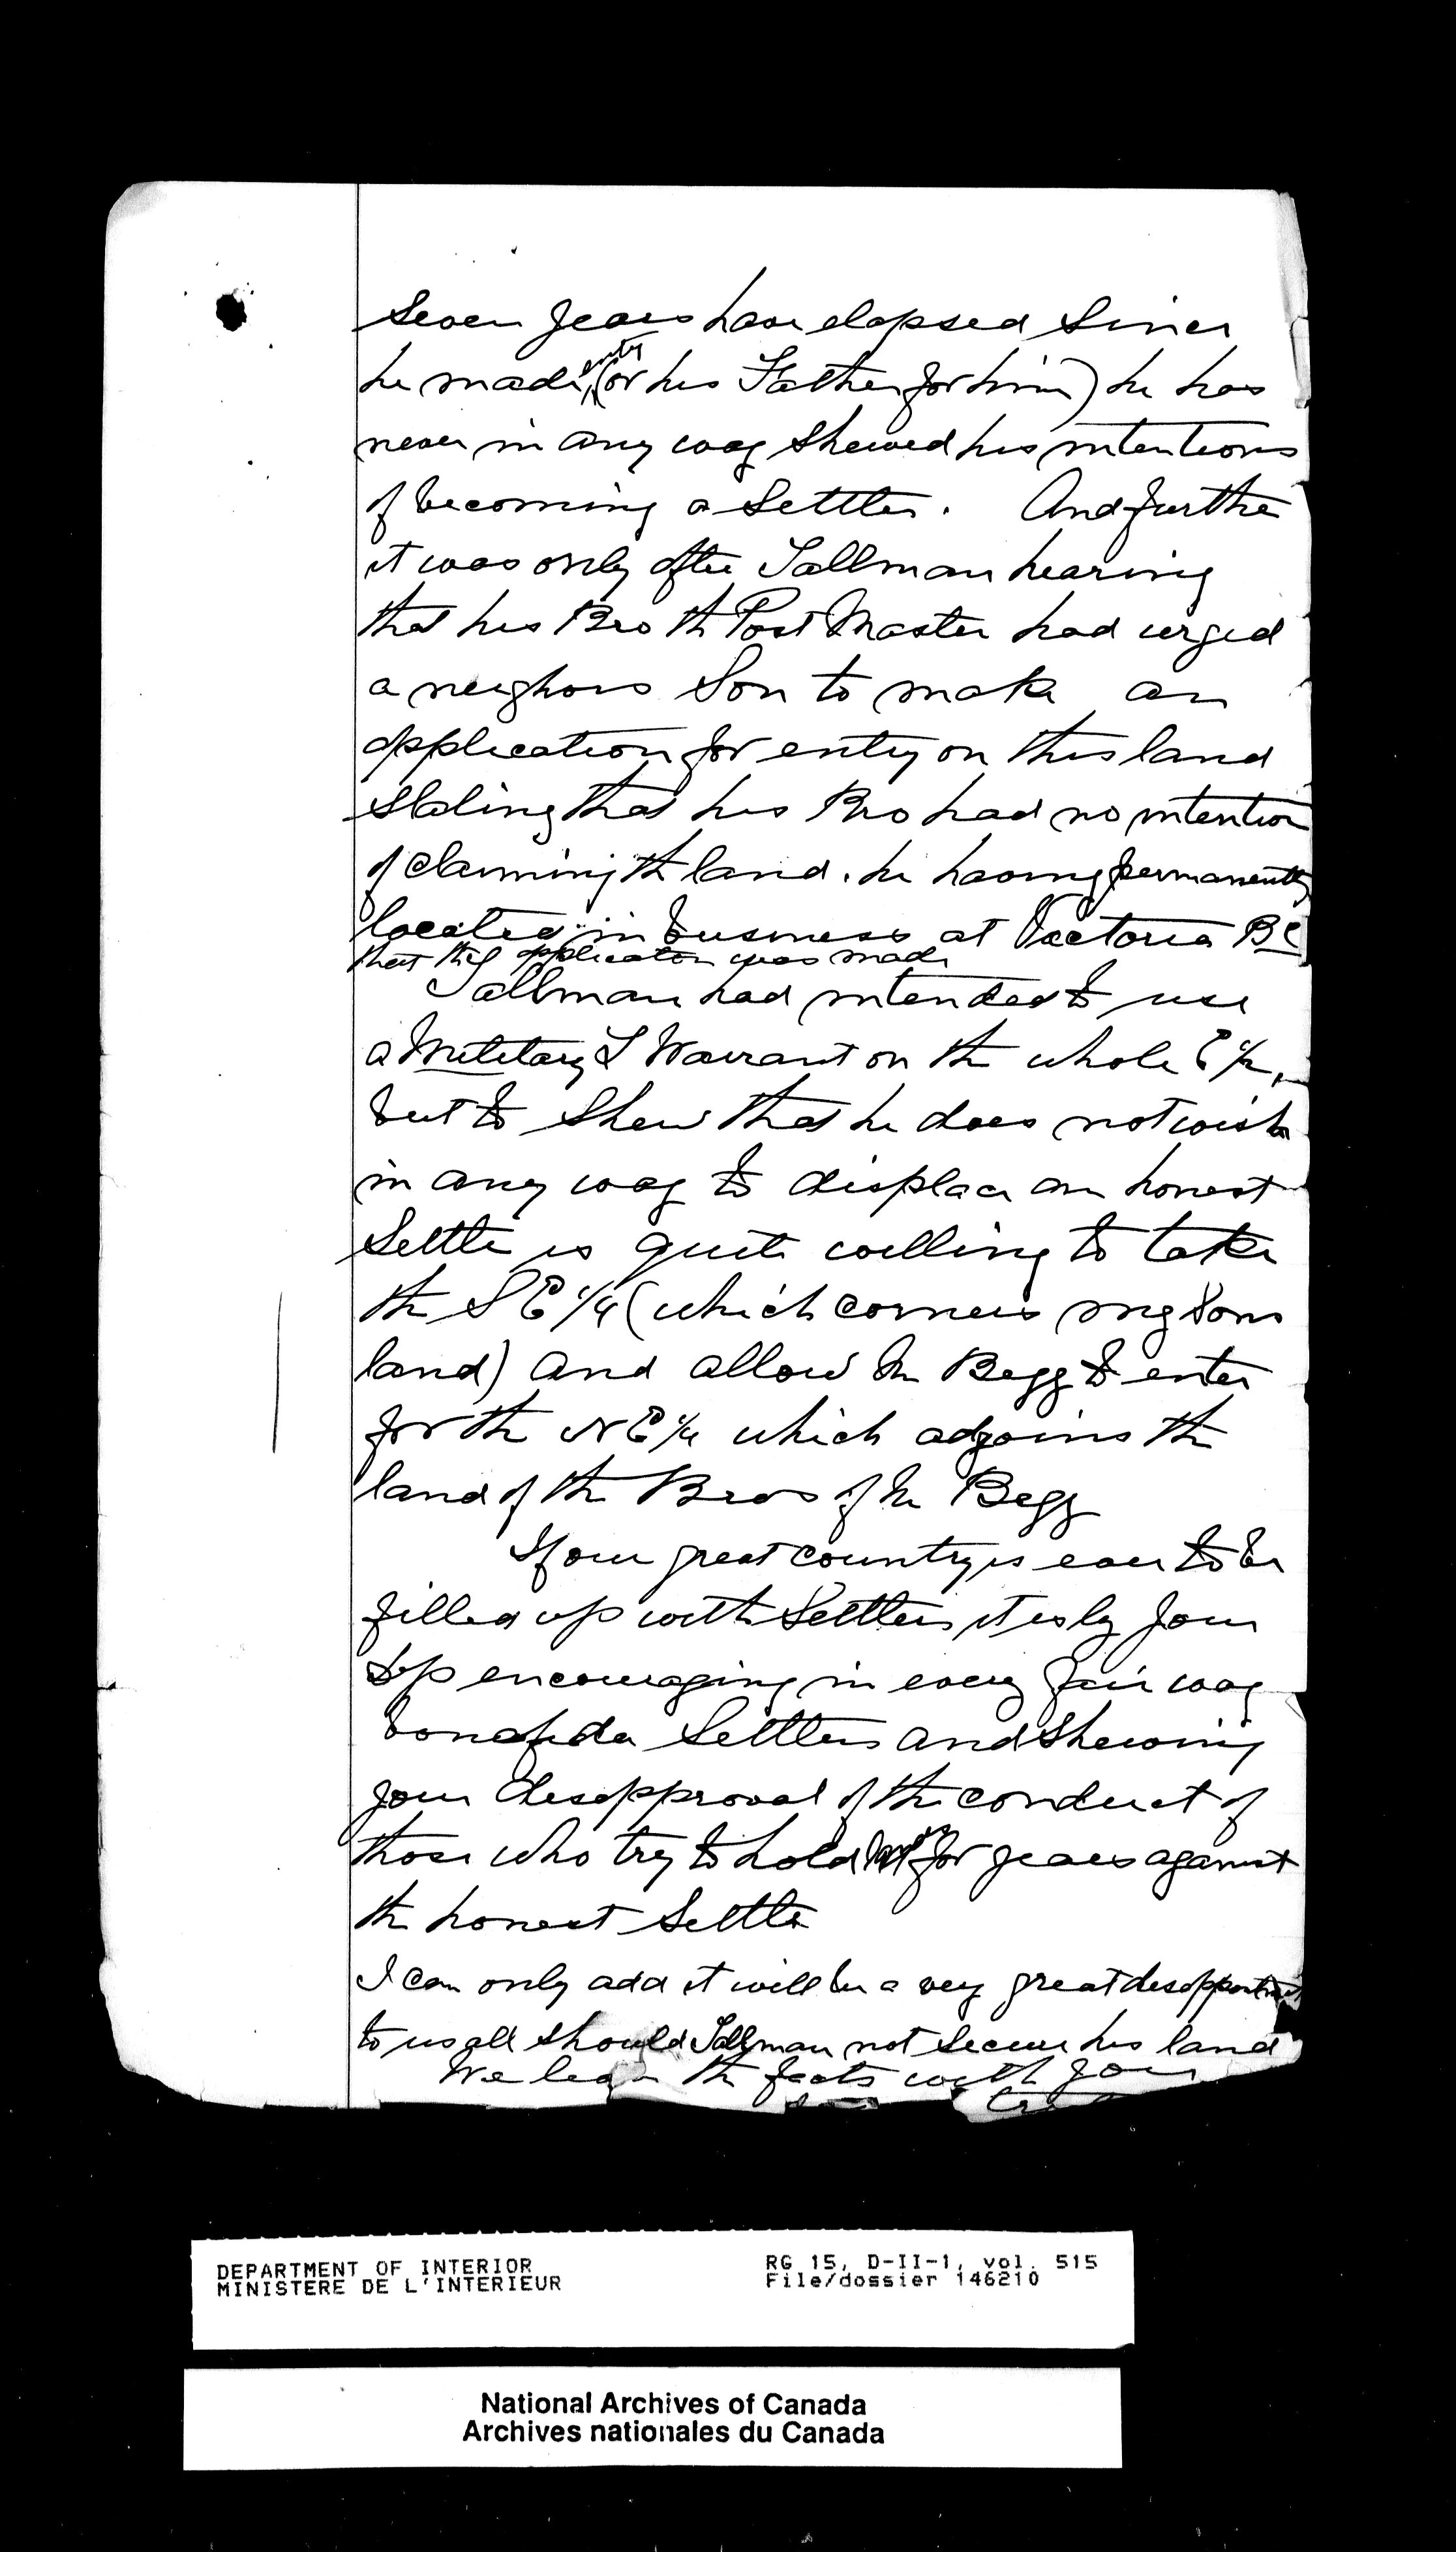 Seven years have elapsed since
he made entry (or his Father for him) he has
never in any way shewed his intentions
of becoming a Settler. And further
it was only after Tallman hearing
that his Bro th Post Master had urged
a neighors Son to make an
application for entry on this land
stating that his Bro had no intention
of claiming th land. he having permanently
located in business at Victoria BC
that this application was made
Tallman had intended to use
a Military L Warrant on th whole E 1/2,
but to shew that he does not wish
in any way to displace an honest
Settler is quite willing to take
th S E 1/4 (which corners my Sons
land) and allow Mr Begg to enter
for th N E 1/4 which adjoins th
land of th Bros of Mr Begg
If our great country is ever to be
filled up with Settlers it is by your
Dep encouraging in every fair way
bonafide Settlers and shewing
your disapproval of the conduct of
those who try to hold for years against
th honest Settler
I can only add it will be a very great disappointment
to us all should Tallman not secure his land
We leave th facts with your
DEPARTMENT OF INTERIOR
MINISTERE DE L'INTERIEUR
RG 15, D-II-1, vol. 515
File/dossier 146210
National Archives of Canada
Archives nationales du Canada